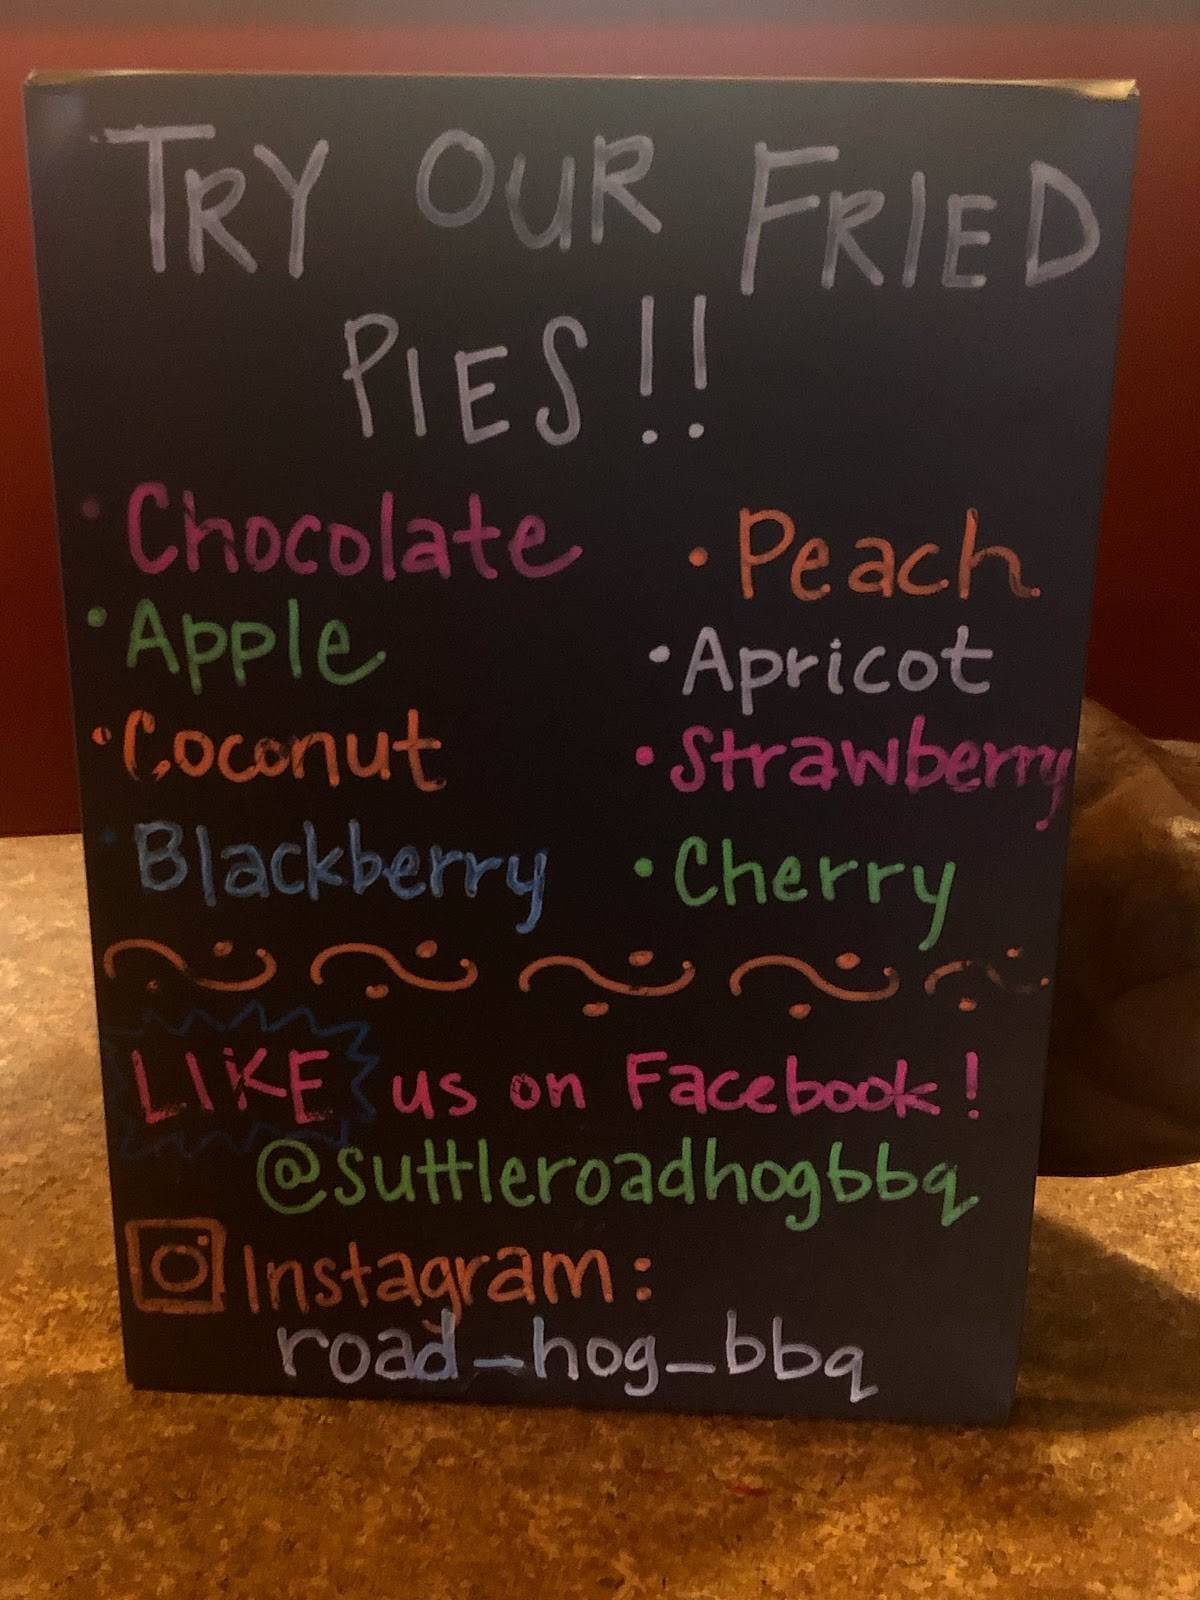 TRY OUR FRIED
PIES!!
• Chocolate
• Apple
• Coconut
• Blackberry
• Peach
• Apricot
• Strawberry
• Cherry
LIKE us on Facebook!
@suttleroadhogbbq
Instagram:
road_hog_bbq